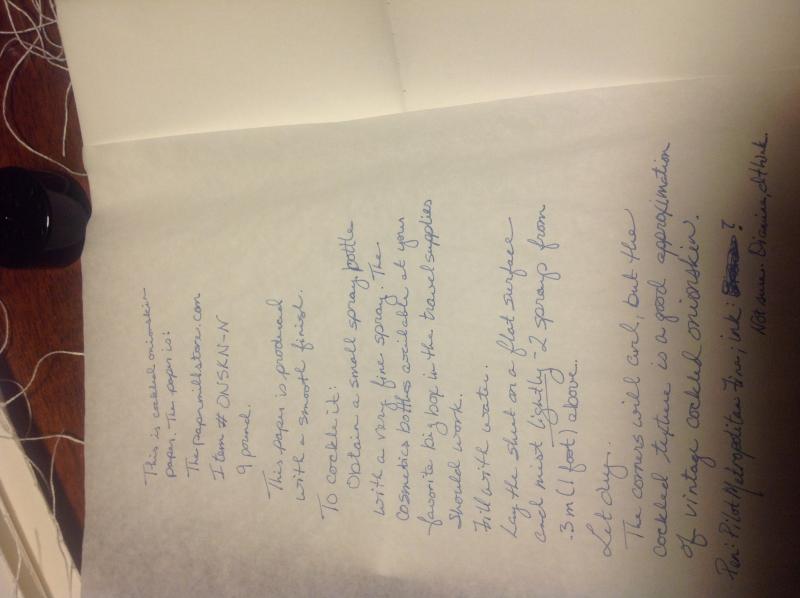 This is cockled onionskin
paper. The paper is:
Thepapermillstore.com
Item # ONSKN-N
9 pound.
This paper is produced
with a smooth finish.
To cockle it:
Obtain a small spray bottle
with a very fine spray. The
cosmetics bottles available at your
favorite big box in the travel supplies
should work.
Fill with water.
Lay the sheet on a flat surface
and mist lightly - 2 sprays from
.3 m (1 foot) above.
Let dry.
The corners will curl, but the
cockled texture is a good approximation
of vintage cockled onionskin.
Pen: Pilot Metropolitan Fine; ink: ?
Not sure. Diamine, I think.